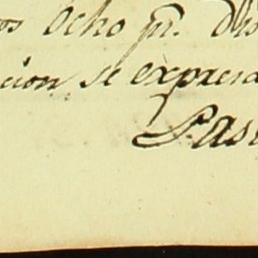 os Ocho pr. dis
cion se expresa
Pas